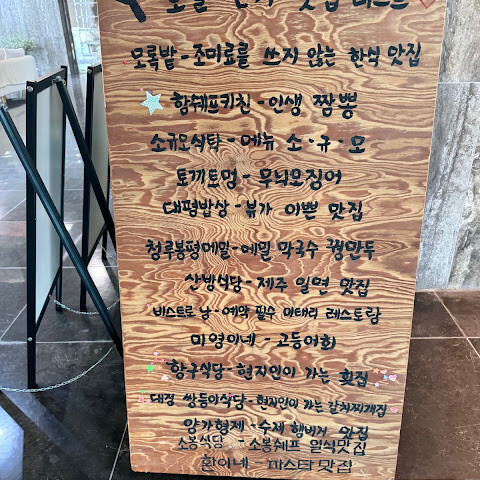 호텔 근처 맛집 리스트
모록밭 - 조미료를 쓰지 않는 한식 맛집
함쉐프키친 - 인생 짬뽕
소규모식탁 - 메뉴 소·규·모
토끼토멍 - 무늬오징어
대평밥상 - 뷰가 이쁜 맛집
청루봉평메밀 - 메밀 막국수 꿩만두
산방식당 - 제주 밀면 맛집
비스트로 낭 - 예약 필수 이태리 레스토랑
미영이네 - 고등어회
항구식당 - 현지인이 가는 횟집
대정 쌍둥이식당 - 현지인이 가는 갈치찌개집
양가형제 - 수제 햄버거 맛집
소봉식당 - 소봉쉐프 일식맛집
환이네 - 파스타 맛집